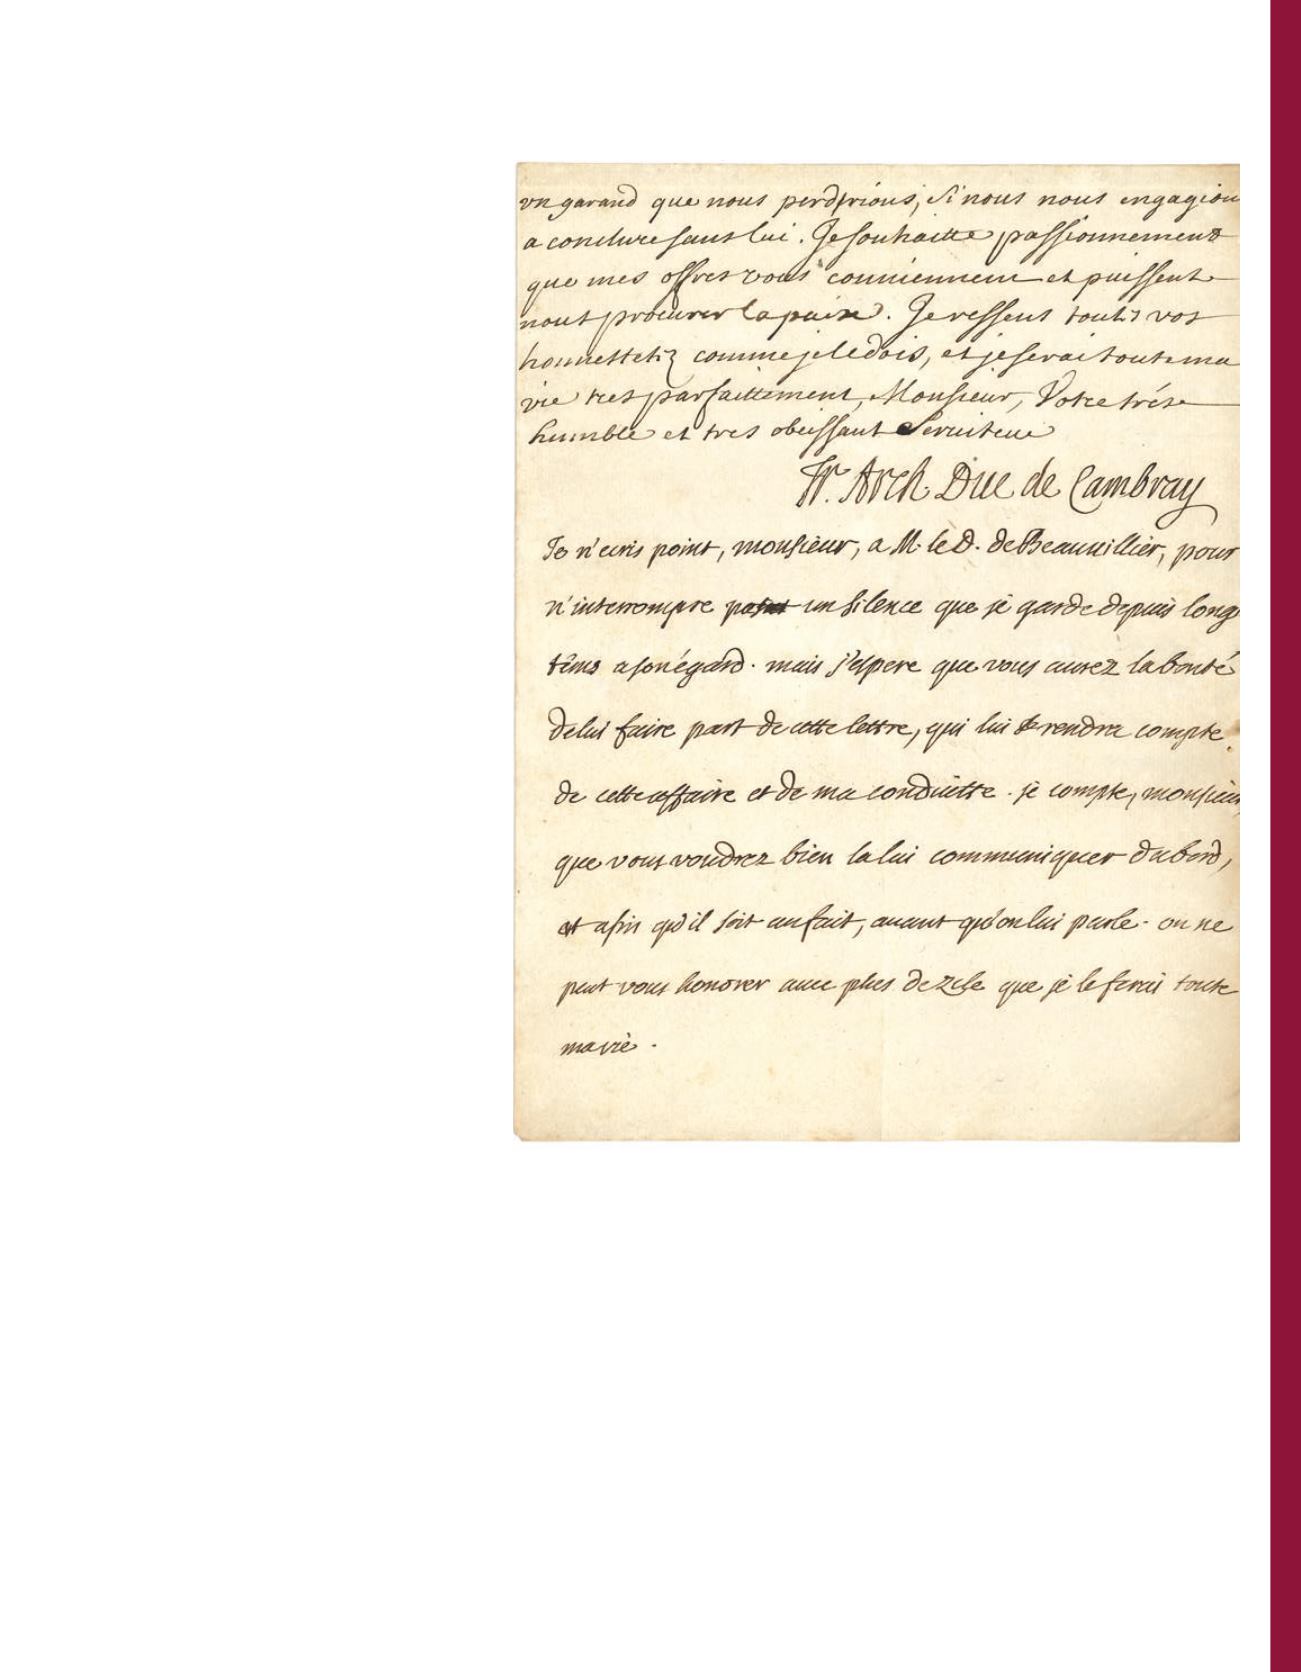 un garand que nous perdrions, si nous nous engagion
a conclure sans lui. Je souhaitte passionnement
que mes offres vous conviennent et puissent
nous procurer la paix. Je ressens toutes vos
honnestetez comme je le dois, et je serai toute ma
vie tres parfaittement, Monsieur, Votre trés
humble et tres obeissant Serviteur
Fr. Arch. Duc de Cambray
Je n'ecris point, monsieur, a M. le D. de Beauvillier, pour
n'interrompre point un silence que je garde depuis long
téms a son égard. mais j'espere que vous aurez la bonté
de lui faire part de cette lettre, qui lui rendra compte
de cette affaire et de ma conduitte. je compte, monsieur,
que vous voudrez bien la lui communiquer dabord,
et afin qu'il soit au fait, avant qu'on lui parle. on ne
peut vous honorer avec plus de zele que je le ferai toute
ma vie.